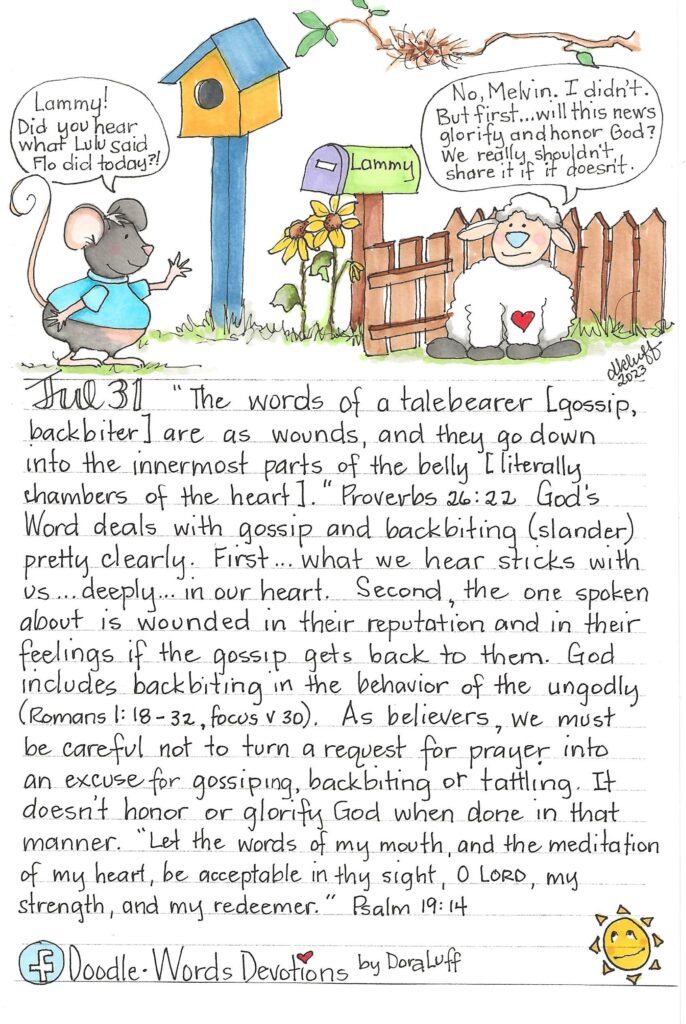 Lammy!
Did you hear
what Lulu said
Flo did today?!
No, Melvin. I didn't.
But first...will this news
glorify and honor God?
We really shouldn't
share it if it doesn't.
Lammy
dkluff
2023
Jul 31 "The words of a talebearer [gossip,
backbiter] are as wounds, and they go down
into the innermost parts of the belly [literally
chambers of the heart]." Proverbs 26:22 God's
Word deals with gossip and backbiting (slander)
pretty clearly. First... what we hear sticks with
us... deeply... in our heart. Second, the one spoken
about is wounded in their reputation and in their
feelings if the gossip gets back to them. God
includes backbiting in the behavior of the ungodly
(Romans 1:18-32, focus v 30). As believers, we must
be careful not to turn a request for prayer into
an excuse for gossiping, backbiting or tattling. It
doesn't honor or glorify God when done in that
manner. "Let the words of my mouth, and the meditation
of my heart, be acceptable in thy sight, O LORD, my
strength, and my redeemer." Psalm 19:14
f Doodle-Words Devotions by Dora Luff